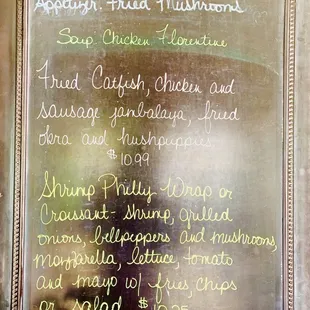 Appetizer: Fried Mushrooms
Soup: Chicken Florentine
Fried Catfish, chicken and
sausage jambalaya, fried
okra and hushpuppies
$10.99
Shrimp Philly Wrap or
Croissant- shrimp, grilled
onions, bellpeppers and mushrooms,
mozzarella, lettuce, tomato
and mayo w/ fries, chips
or salad $10.25